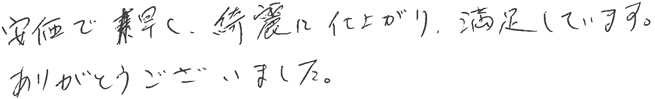 安価で素早く、綺麗に仕上がり、満足しています。
ありがとうございました。